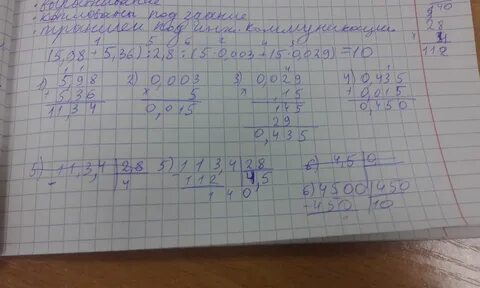 · котлованы под здание
· траншеи под инж. коммуникации
(5,98 + 5,36) : 2,8 : (5·0,003 + 15·0,029) = 10
1) 5,98
+ 5,36
11,34
2) 0,003
× 5
0,015
3) 0,029
× 15
145
29
0,435
4) 0,435
+ 0,015
0,450
5) 11,3,4 | 2,8
- 4
5) 113,4 | 28
- 112 4,5
140
6) 4,5 | 0
6) 4500 | 450
- 450 10
28
4
112